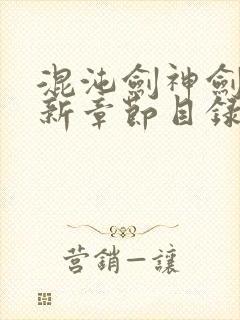 混沌劍神劍
新章節目錄
营銷—讓